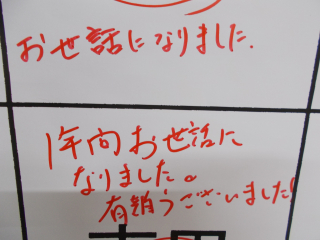 お世話になりました.
1年間お世話に
なりました。
有難うございました!